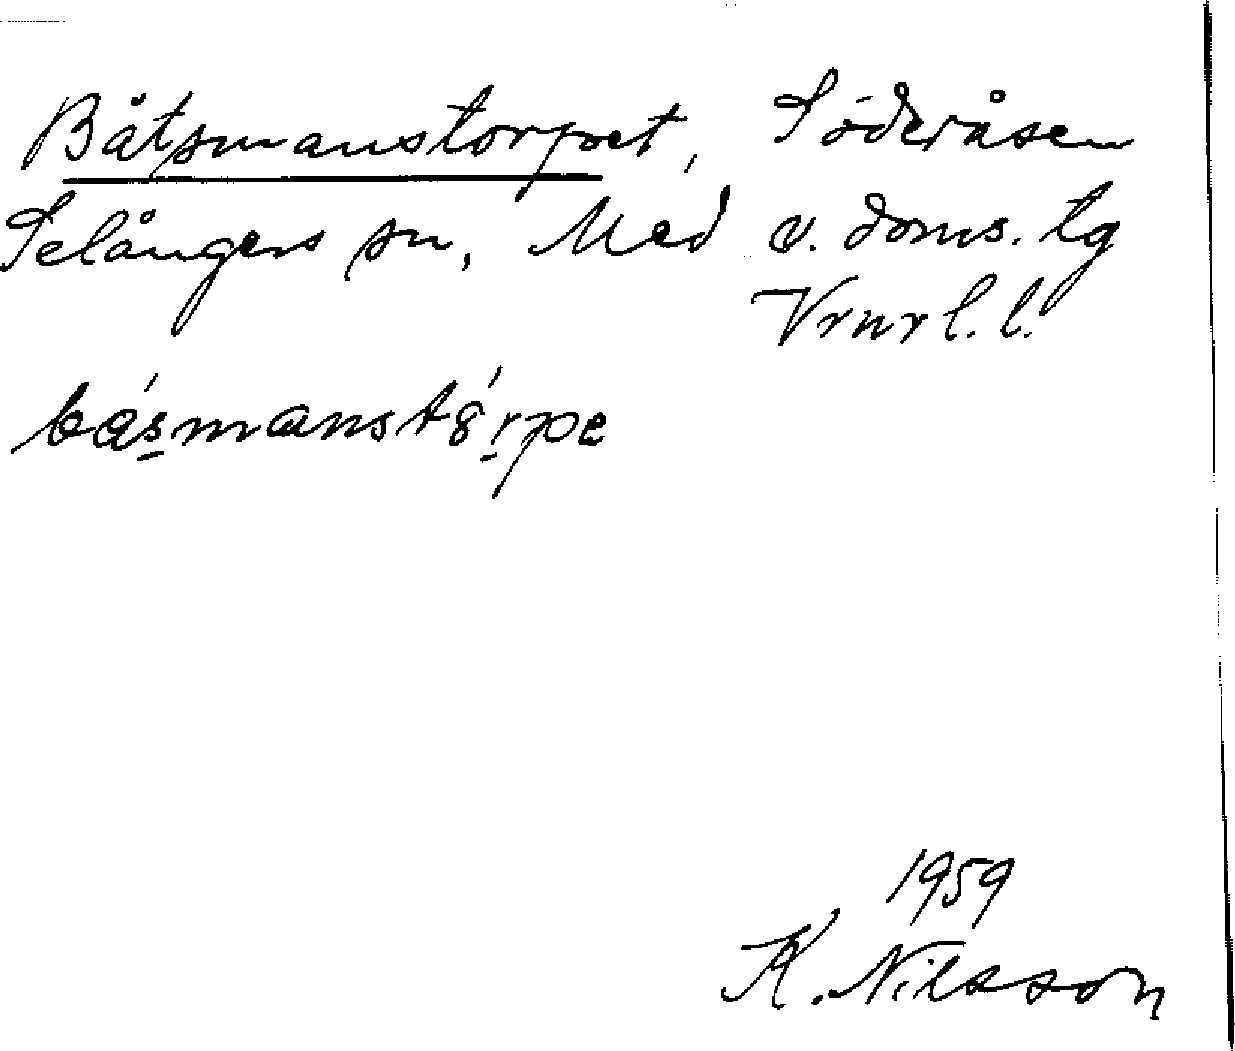 Båtsmanstorpet, Söderåsen
Selångers sn, Med v. doms. tg
Vrnrl. l.
básmanstó̤rpe
1959
K. Nilsson